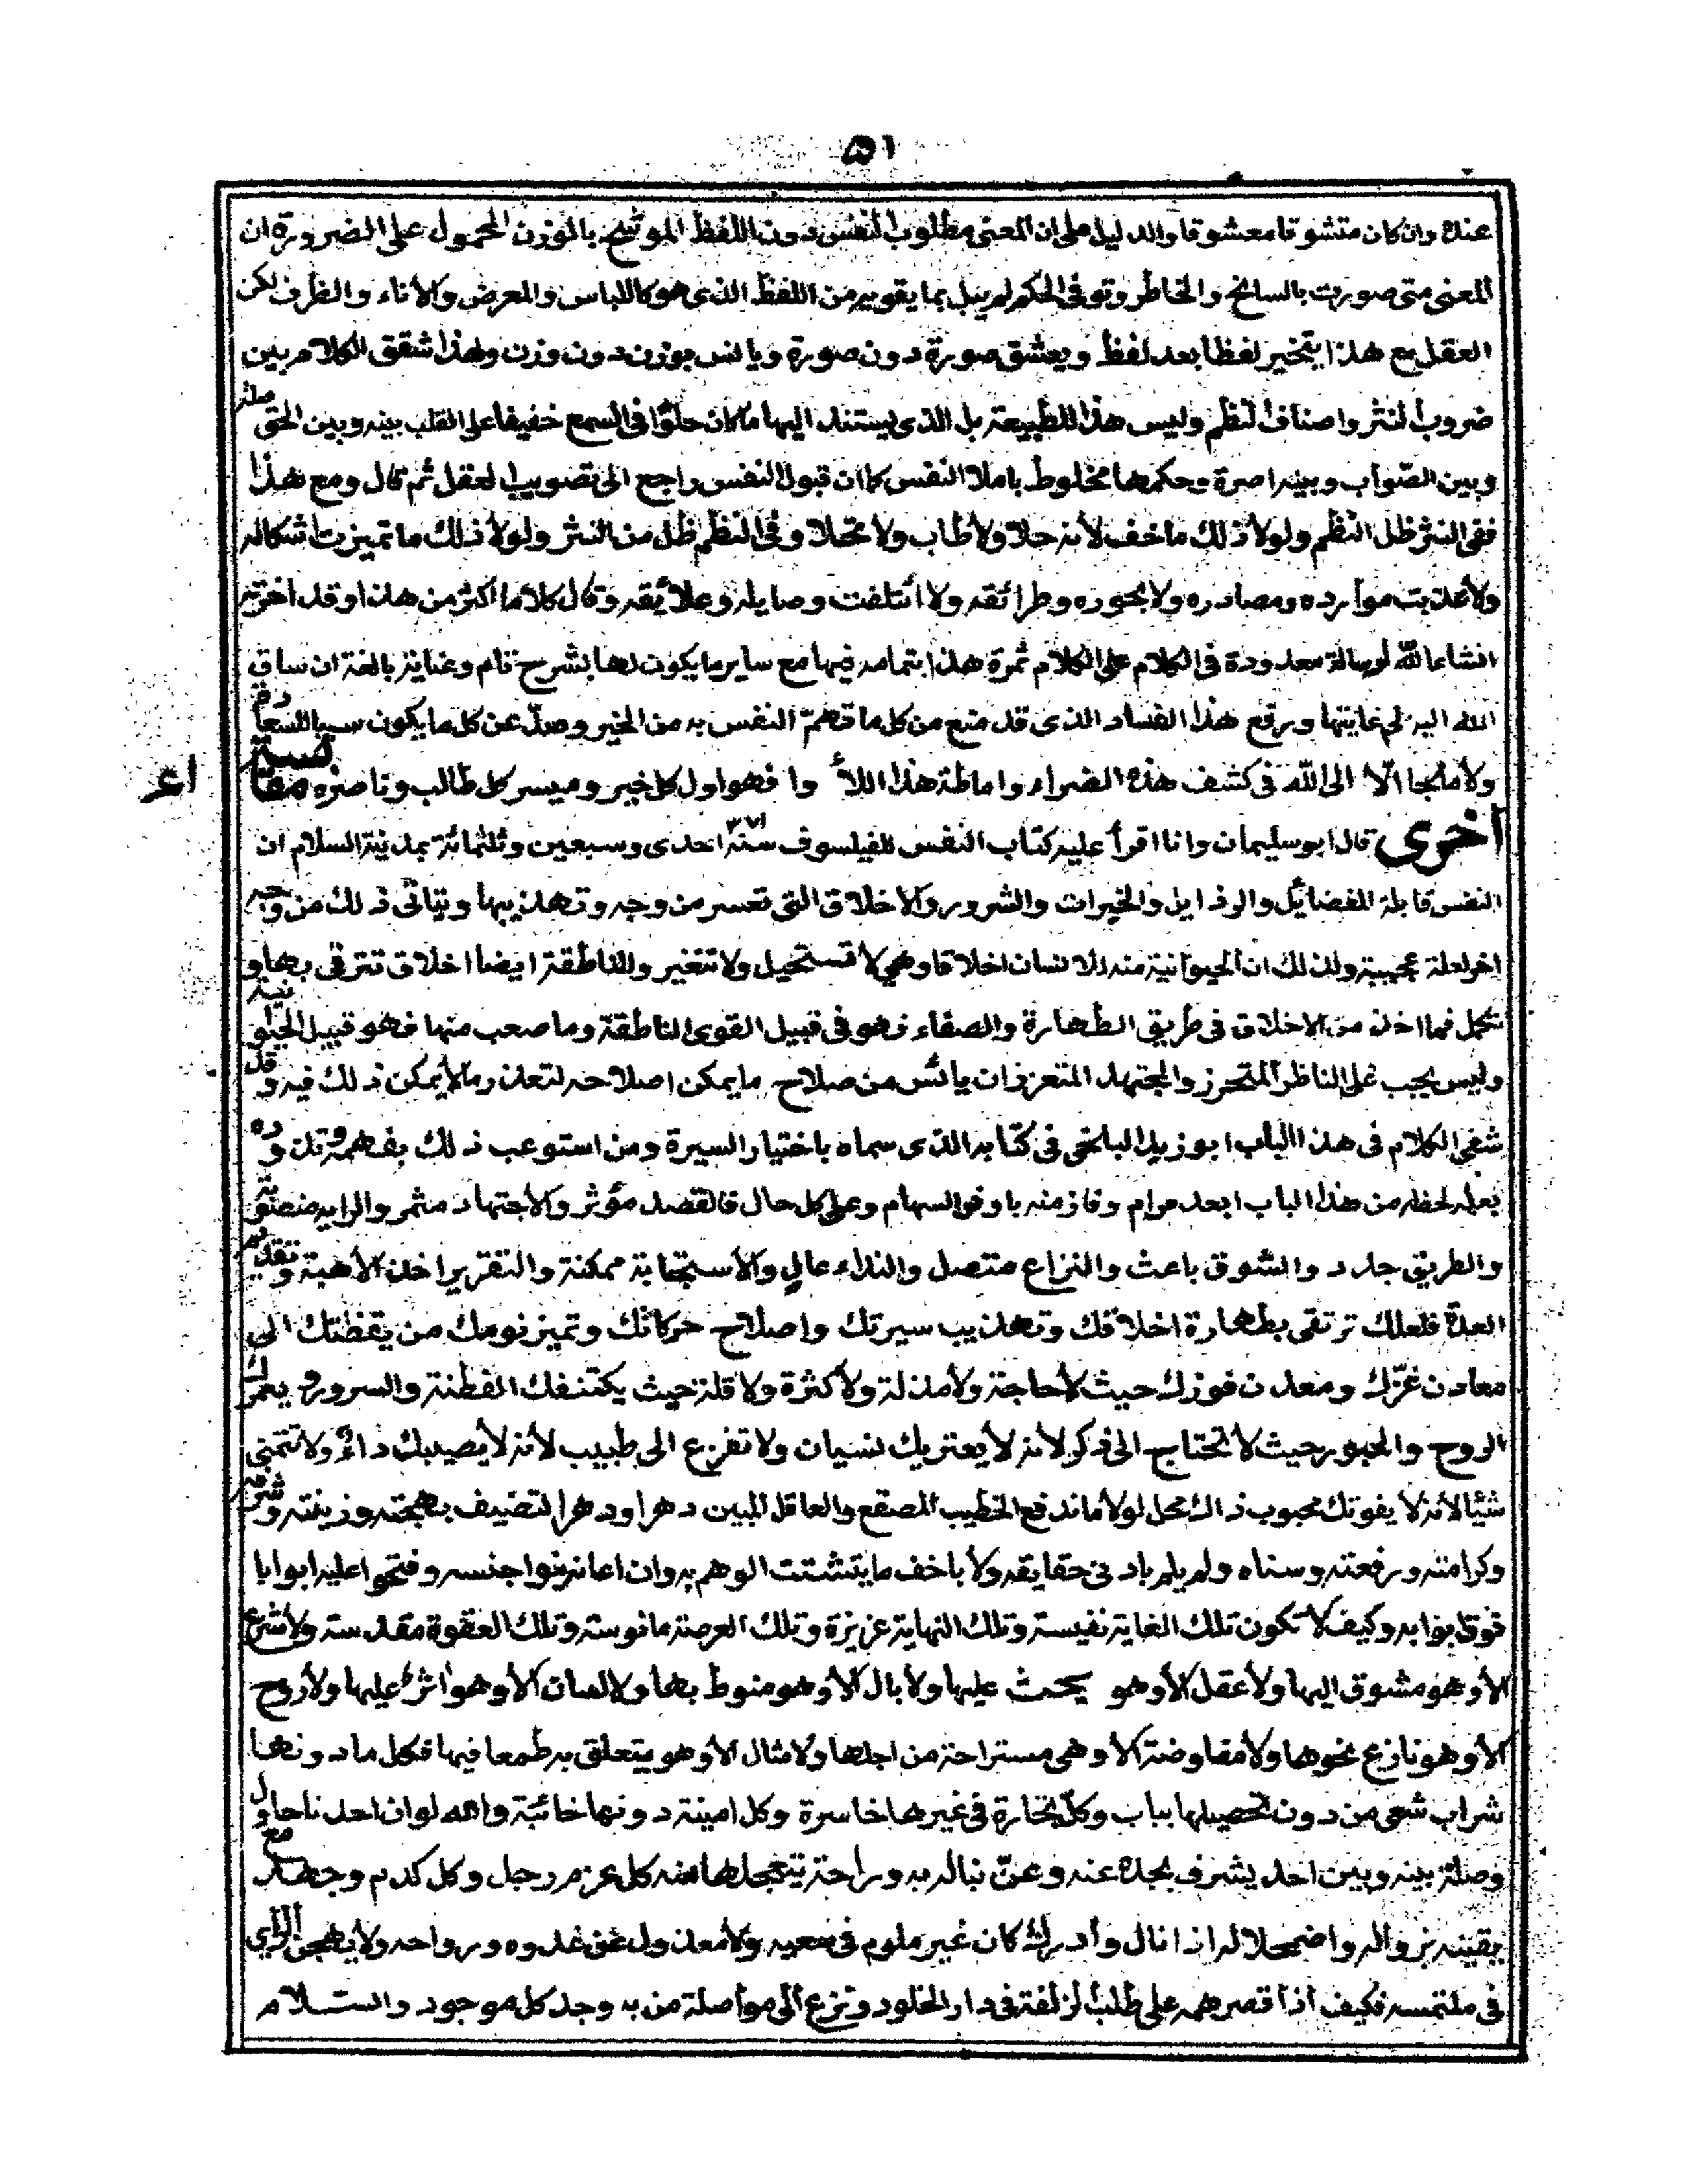 ٥١
عنده وان كان متشوقا معشوقا والدليل على ان المعنى مطلوب النفس دون اللفظ الموشح بالوزن المحمول على الضرورة ان
المعنى متى صورت بالسانح والخاطر وتوفى الحكم لم يبل بما يقويه من اللفظ الذى هو كاللباس والمعرض والأناء والظرف لكن
العقل مع هذا يتخير لفظا بعد لفظ ويعشق صورة دون صورة ويانس بوزن دون وزن ولهذا شقق الكلام بين
ضروب النثر واصناف النظم وليس هذا للطبيعة بل الذى يستند اليها ما كان حلوًا فى السمع خفيفا على القلب بينه وبين الحق صلة
وبين الصّواب وبينه اصرة وحكمها مخلوط باملا النفس كما ان قبول النفس راجع الى تصويب العقل ثم قال ومع هذا
ففى النثر ظل النظم ولولا ذلك ما خف لأنه حلا ولا طاب ولا تحلا وفى النظم ظل من النثر ولولا ذلك ما تميزت اشكاله
ولا عذبت موارده ومصادره ولا بحوره وطرائقه ولا ائتلفت وصايله وعلائقه وقال كلاما اكثر من هذا وقد اخرته
انشاءالله لرسالة معدودة فى الكلام على الكلام ثمرة هذا بتمامه فيها مع ساير ما يكون لها بشرح تام وعناية بالغة ان ساق
الله اليه لى غايتها ورفع هذا الفساد الذى قد منع من كل ما تهمّ النفس به من الخير وصدّ عن كل ما يكون سببا للسعادة
ولا ملجا الّا الى الله فى كشف هذه الضراء واماطة هذا اللأوا فهو اول كل خير وميسر كل طالب وناصره مقابسة
اخرى قال ابو سليمان وانا اقرأ عليه كتاب النفس للفيلسوف سنة ٣٧١ احدى وسبعين وثلثمائة بمدينة السلام ان
النفس قابلة للفضائل والرذايل والخيرات والشرور والاخلاق التى تعسر من وجه وتهذيبها ويتاتى ذلك من وجه
اخر لعلة عجيبة ولذلك ان الحيوانية منه للانسان اخلاقا وهى لا تستحيل ولا تتغير وللناطقة ايضا اخلاق تترقى بها و
تكمل فما اخذ من الاخلاق فى طريق الطهارة والصفاء فهو فى قبيل القوى الناطقة وما صعب منها فهو قبيل الحيوانية
وليس يجب على الناظر المتحرز والمجتهد المتعزز ان يائس من صلاح ما يمكن اصلاحه لتعذر ما لا يمكن ذلك فيه وقد
شفى الكلام فى هذا الباب ابو زيد البلخى فى كتابه الذى سماه باختيار السيرة ومن استوعب ذلك بفهمه وتدوره
بعد لحظه من هذا الباب ابعد مرام وفاز منه باوفر السهام وعلى كل حال فالقصد مؤثر والأجتهاد مثمر والرايه منصوبة
والطريق جادد والشوق باعث والنزاع متصل والنداء عال والأستجابة ممكنة والتقرير اخذ الأهبة وتقديم
العدة فلعلك ترتقى بطهارة اخلاقك وتهذيب سيرتك واصلاح حركاتك وتميز نومك من يقظتك الى
معادن عزّك ومعدن فوزك حيث لأحاجة ولأمذلة ولأكثرة ولا قلة حيث يكتنفك الفطنة والسرور ويعمرك
الروح والحبور حيث لا تحتاج الى ذكر لأنه لأيعتريك نسيان ولا تفزع الى طبيب لأنه لأيصيبك داءٌ ولا تتمنى
شيئا لأنه لا يفوتك محبوب ذاك محل لولا ما ندفع الخطيب المصقع والعاقل المبين دهرا ودهرا لتضيف بهجته وزينته وشرفه
وكرامته ورفعته وسناه ولم يلم باد فى حقايقه ولأ باخف ما يتشتت الوهم به وان اعانه بنوا جنسه وفتحوا عليه ابوابا
فوق ابوابه وكيف لا تكون تلك الغاية نفيسة وتلك النهاية عزيزة وتلك العرصة مانوسة وتلك العقوة مقدسة ولأشرع
الأوهو مشوق اليها ولأعقل الأوهو يحث عليها ولأبال الأوهو منوط بها ولالسان الأوهو اثر عليها ولأروح
الأوهو نازع نحوها ولأمفاوضة الأوهى مستراحة من اجلها ولامثال الأوهو يتعلق به طمعا فيها فكل ما دونها
شراب شعى من دون تحصيلها بباب وكلّ تجارة فى غيرها خاسرة وكل امينة دونها خائبة والله لو ان احدنا حاول
وصلة بينه وبين احد يشرف بجده عنه وعزّ نباله به وراحة يتعجلها منه كل عزم رجل وكل كدم وجهد مع
يقينه بزواله واضمحلاله اذا نال وأدرك كان غير ملوم فى سعيه ولأمعذول عن غدوه ورواحه ولأيهجن الراى
فى ملتمسه فكيف اذا قصر همه على طلب الزلفة فى دار الخلود ونزع الى مواصلة من به وجد كل موجود والسلام